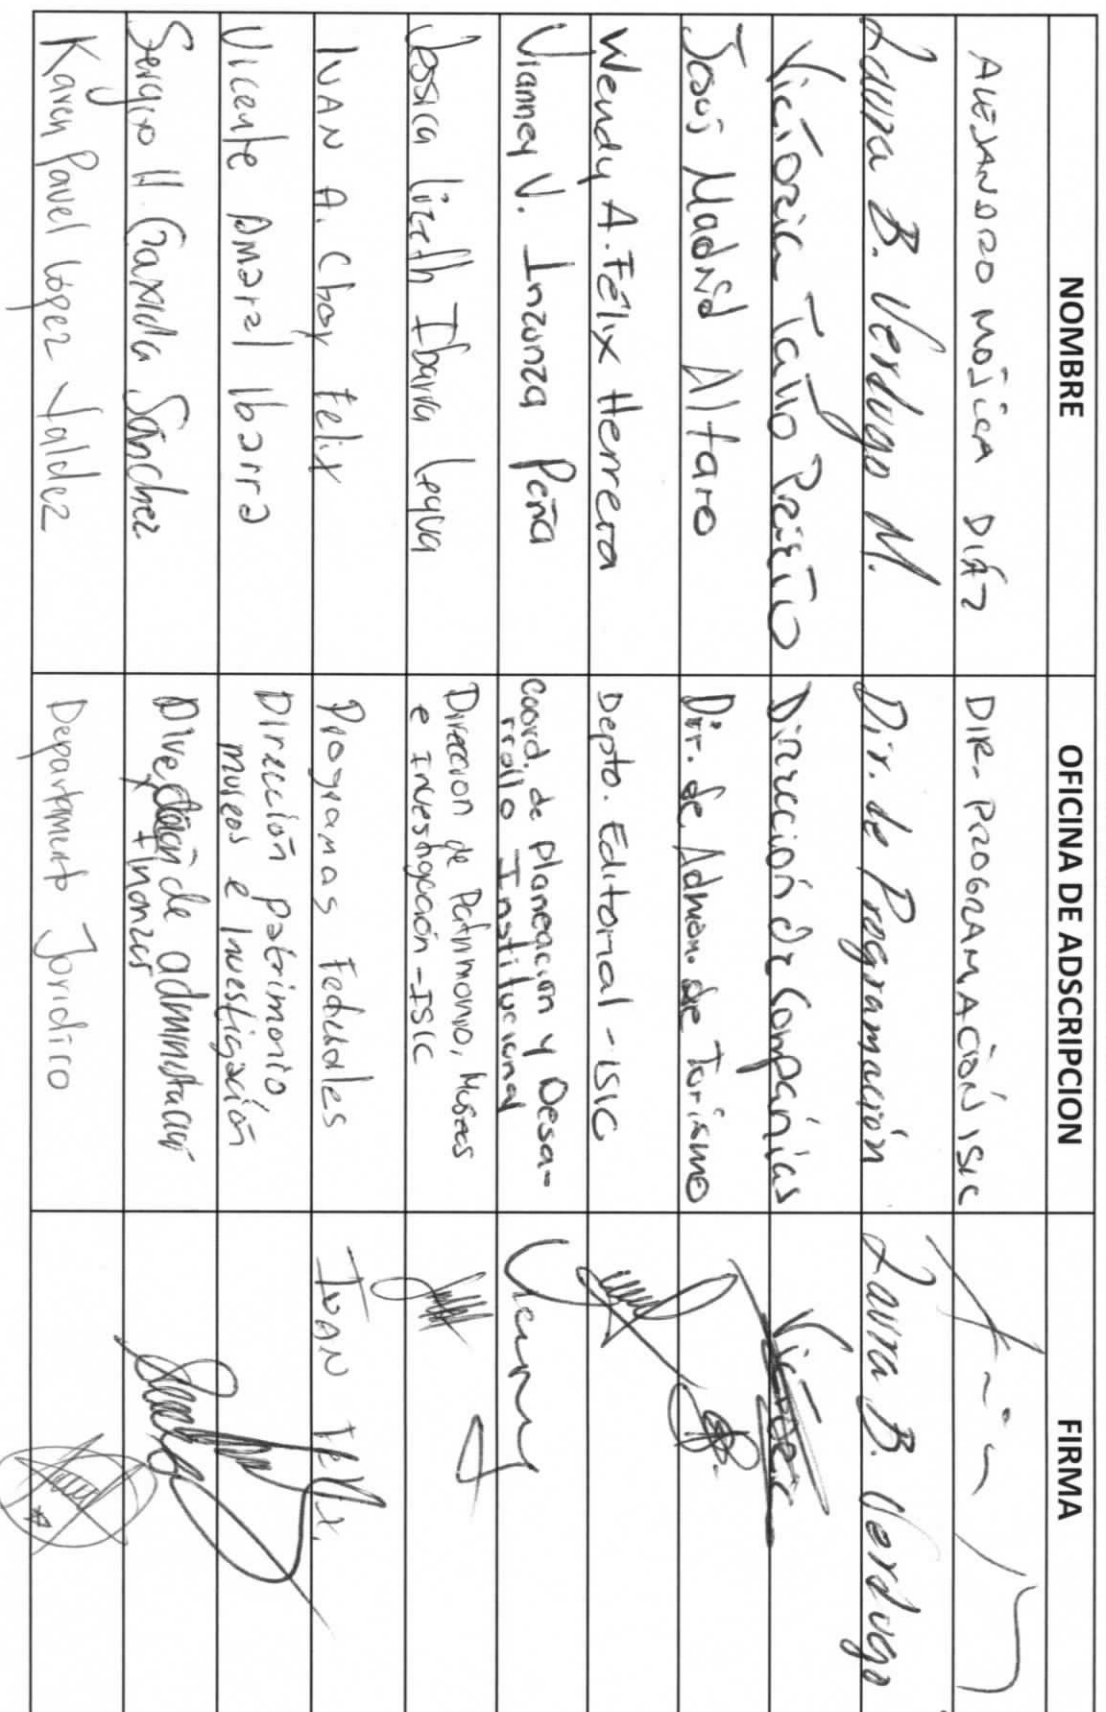 NOMBRE OFICINA DE ADSCRIPCION FIRMA
ALEJANDRO MOJICA DIÁZ DIR- PROGRAMACIÓN ISIC
Laura B. Verdugo M. Dir. de Programación Laura B. Verdugo
Victoria Tatto Prieto Dirección de Compañías
Jesus Madrid Alfaro Dir. de Admon. de Turismo
Wendy A. Félix Herrera Depto. Editorial - ISIC
Vianney V. Inzunza Peña Coord. de Planeación y Desa-
rrollo Institucional
Jessica Lizeth Ibarra Leyva Dirección de Patrimonio, Museos
e Investigación - ISIC
IVAN A. Chay Felix Programas Federales IVAN Felix
Vicente Amaral Ibarra Dirección patrimonio
museos e Investigación
Sergio H. Gaxiola Sánchez Dirección de administración
Finanzas
Karen Pavel López Valdez Departamento Jurídico